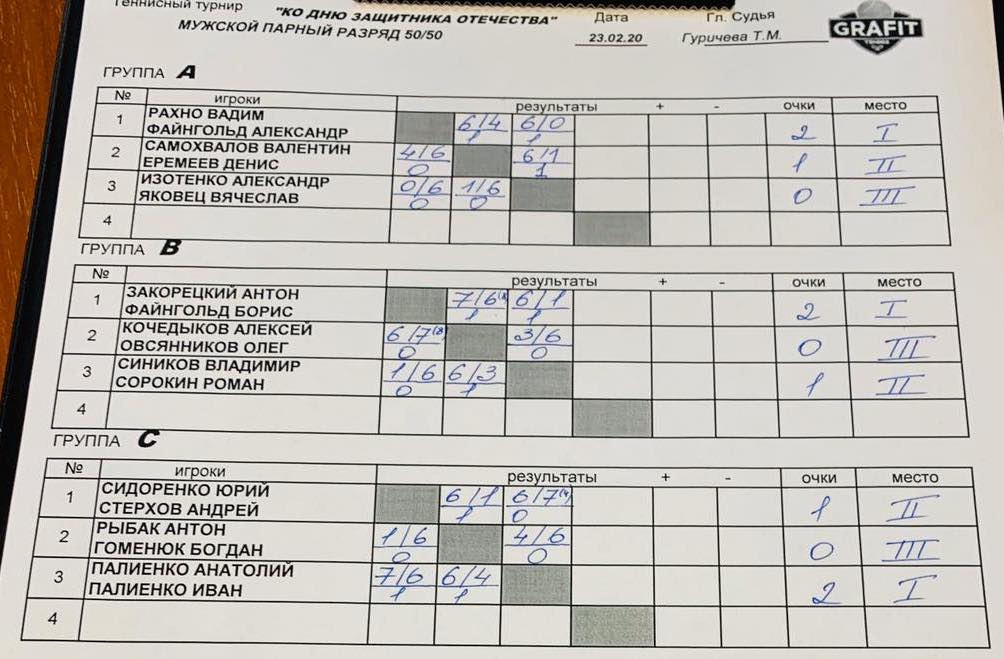 Теннисный турнир "КО ДНЮ ЗАЩИТНИКА ОТЕЧЕСТВА" Дата Гл. Судья
МУЖСКОЙ ПАРНЫЙ РАЗРЯД 50/50 23.02.20 Гуричева Т.М. GRAFIT
ГРУППА A
№ игроки результаты + - очки место
1 РАХНО ВАДИМ 6/4 6/0 2 I
ФАЙНГОЛЬД АЛЕКСАНДР 1 1
2 САМОХВАЛОВ ВАЛЕНТИН 4/6 6/1 1 II
ЕРЕМЕЕВ ДЕНИС 0 1
3 ИЗОТЕНКО АЛЕКСАНДР 0/6 1/6 0 III
ЯКОВЕЦ ВЯЧЕСЛАВ 0 0
4
ГРУППА B
№ результаты + - очки место
1 ЗАКОРЕЦКИЙ АНТОН 7/6 6/1 2 I
ФАЙНГОЛЬД БОРИС 1 1
2 КОЧЕДЫКОВ АЛЕКСЕЙ 6/7(8) 3/6 0 III
ОВСЯННИКОВ ОЛЕГ 0 0
3 СИНИКОВ ВЛАДИМИР 1/6 6/3 1 II
СОРОКИН РОМАН 0 1
4
ГРУППА C
№ игроки результаты + - очки место
1 СИДОРЕНКО ЮРИЙ 6/1 6/7(4) 1 II
СТЕРХОВ АНДРЕЙ 1 0
2 РЫБАК АНТОН 1/6 4/6 0 III
ГОМЕНЮК БОГДАН 0 0
3 ПАЛИЕНКО АНАТОЛИЙ 7/6 6/4 2 I
ПАЛИЕНКО ИВАН 1 1
4